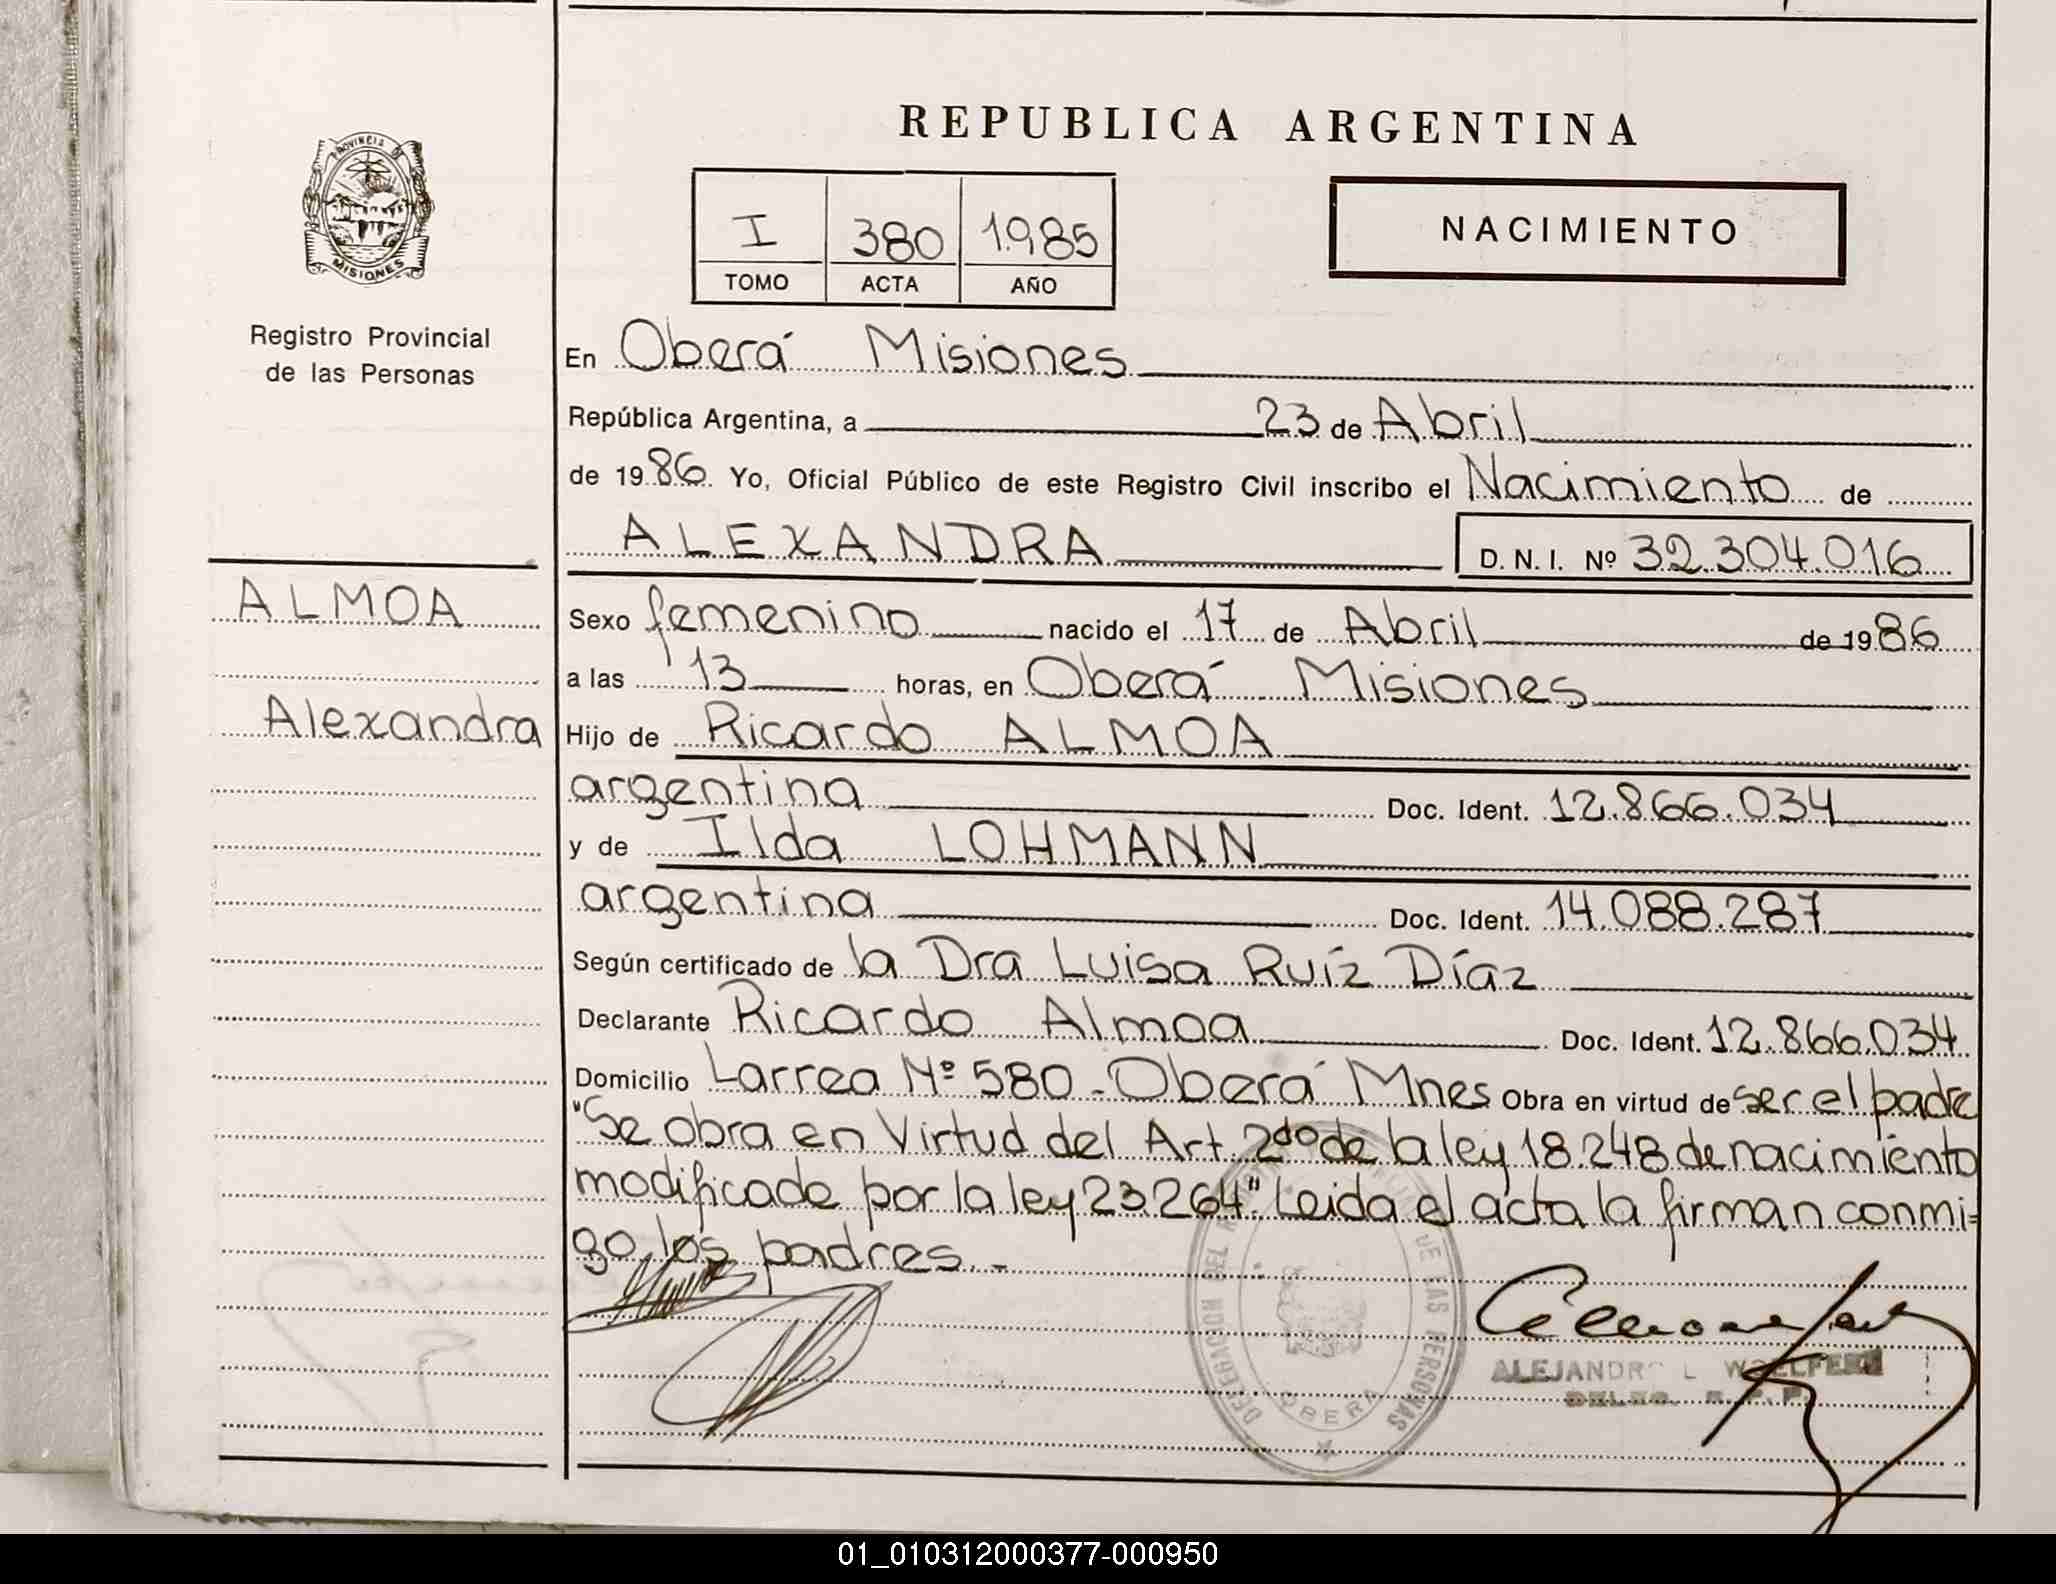 REPUBLICA ARGENTINA
PROVINCIA DE
MISIONES
Registro Provincial
de las Personas
I 380 1.985
TOMO ACTA AÑO
NACIMIENTO
En Oberá Misiones
República Argentina, a 23 de Abril
de 1986. Yo, Oficial Público de este Registro Civil inscribo el Nacimiento de
ALEXANDRA D. N. I. Nº 32.304.016
ALMOA
Sexo femenino nacido el 17 de Abril de 1986
a las 13 horas, en Oberá Misiones
Alexandra
Hijo de Ricardo ALMOA
argentina Doc. Ident. 12.866.034
y de Ilda LOHMANN
argentina Doc. Ident. 14.088.287
Según certificado de la Dra Luisa Ruíz Díaz
Declarante Ricardo Almoa Doc. Ident. 12.866.034
Domicilio Larrea Nº 580 - Oberá Mnes Obra en virtud de ser el padre
"Se obra en Virtud del Art 2do de la ley 18.248 de nacimiento
modificado por la ley 23.264". Leida el acta la firman conmi=
go los padres. -
DELEGACION DEL DE LAS PERSONAS
OBERA
ALEJANDRO L
DELEG. R. P. P.
01_010312000377-000950